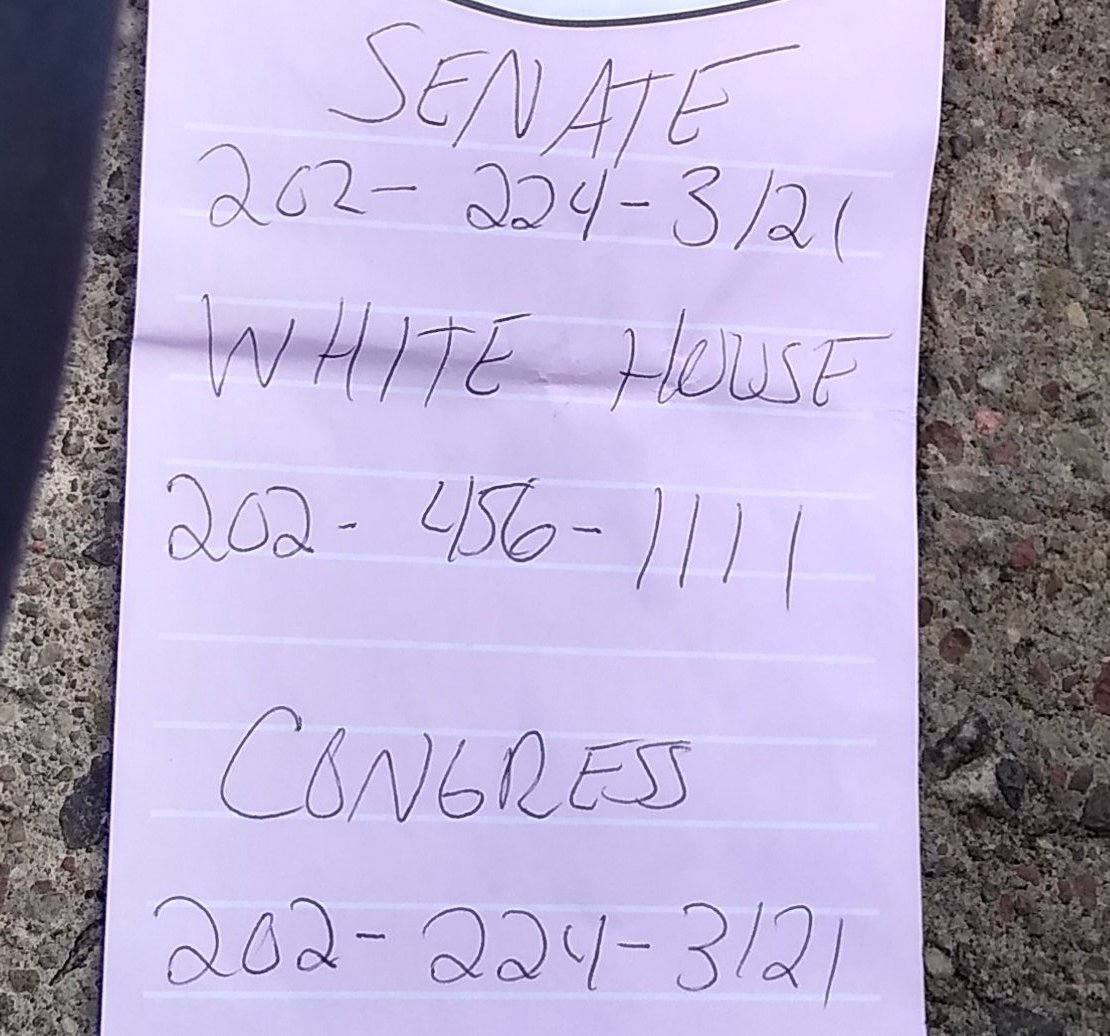 SENATE
202- 224-3121
WHITE HOUSE
202- 456-1111
CONGRESS
202-224-3121